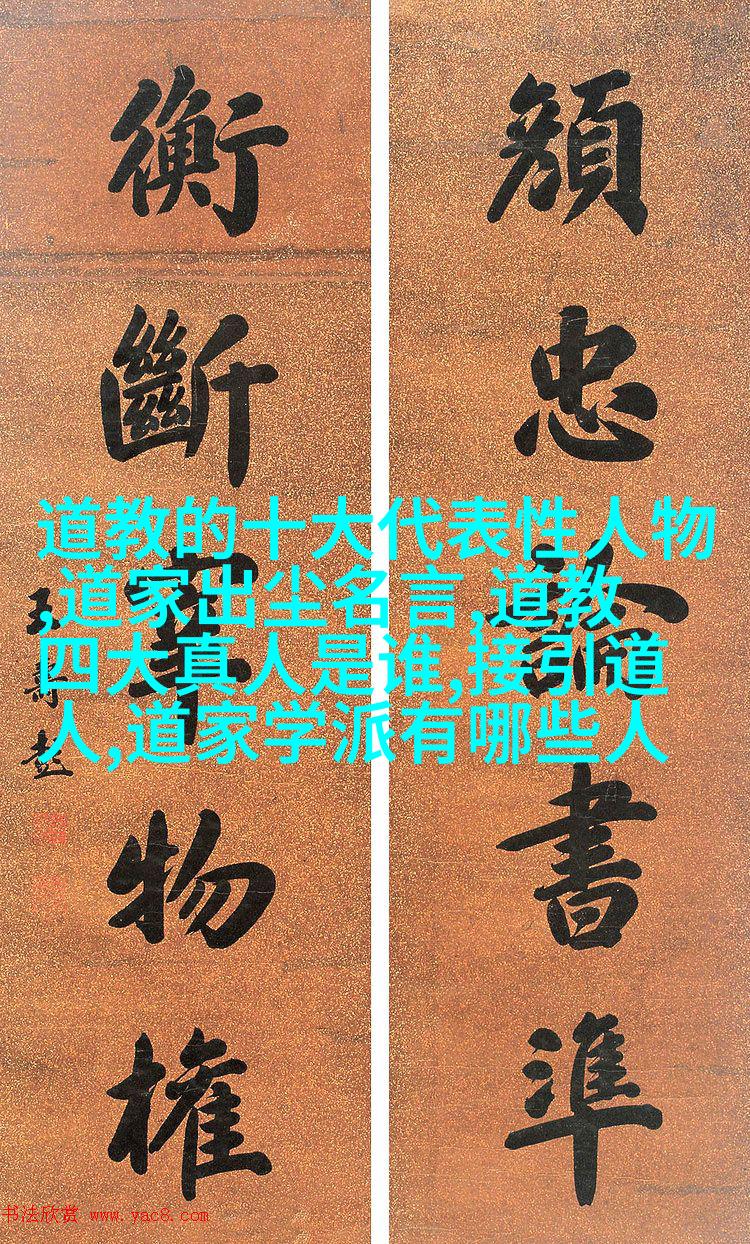 顏忠論書準
衡斷物權
王壽彭
道教的十大代表性人物
,道家出尘名言,道教
四大真人是谁,接引道
人,道家学派有哪些人
书法欣赏 www.yac8.com